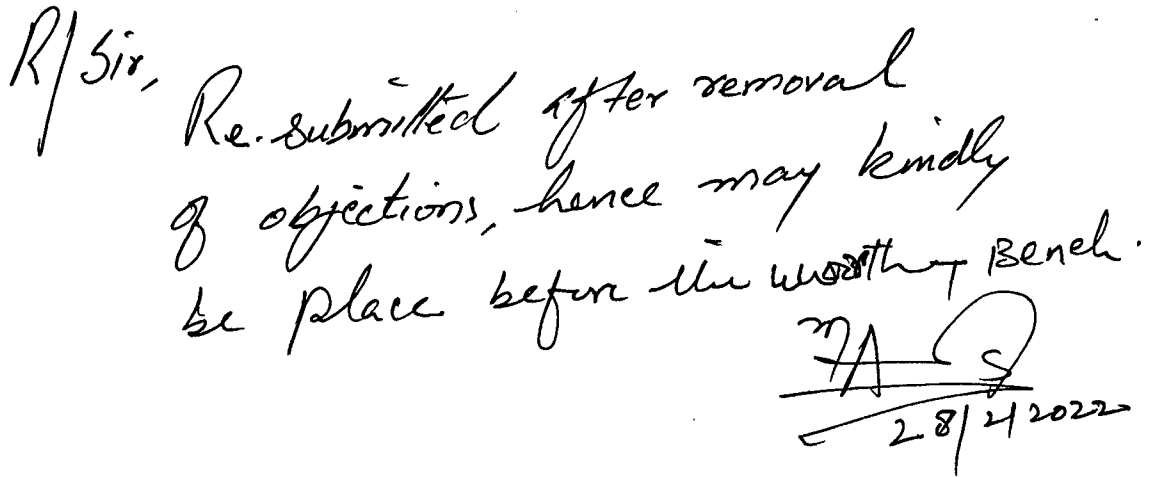 R/Sir,
Re-submitted after removal
of objections, hence may kindly
be place before the worthy Bench.
28/2/2022